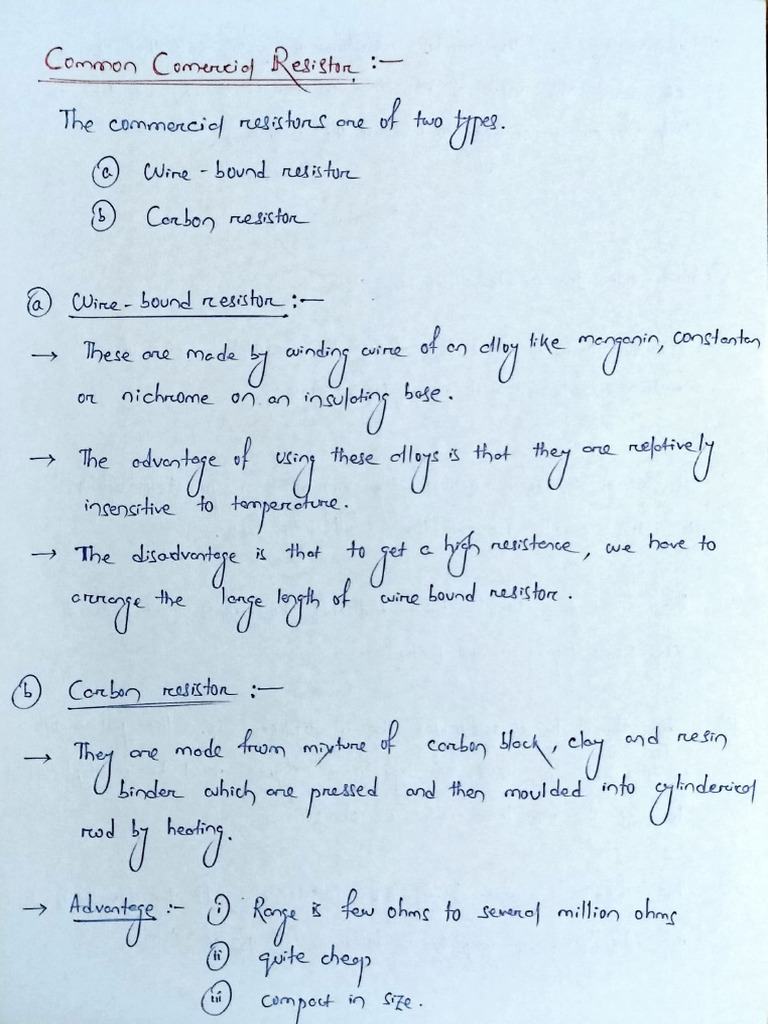 Common Comercial Resistor :-
The commercial resistors are of two types.
(a) Wire - bound resistor
(b) Carbon resistor
(a) Wire - bound resistor :-
→ These are made by winding wire of an alloy like manganin, constantan
or nichrome on an insulating base.
→ The advantage of using these alloys is that they are relatively
insensitive to temperature.
→ The disadvantage is that to get a high resistence, we have to
arrange the large length of wire bound resistor.
(b) Carbon resistor :-
→ They are made from mixture of carbon black, clay and resin
binder which are pressed and then moulded into cylinderical
rod by heating.
→ Advantage :- (i) Range is few ohms to several million ohms
(ii) quite cheap
(iii) compact in size.